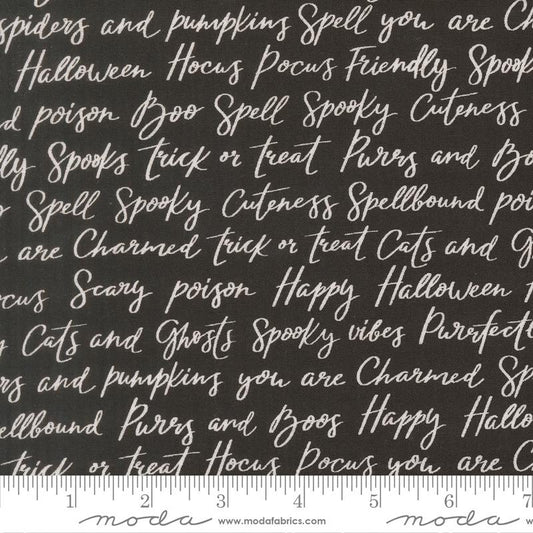 spiders and pumpkins Spell you are
Halloween Hocus Pocus Friendly Spook
poison Boo Spell Spooky Cuteness
Spooks trick or treat Purrs and
Spell Spooky Cuteness Spellbound
are Charmed trick or treat Cats and
Scary poison Happy Halloween
Cats and Ghosts Spooky vibes Purrfect
and pumpkins you are Charmed
Purrs and Boos Happy
trick or treat Hocus Pocus you are
1 2 3 4 5 6 7
moda www.modafabrics.com moda